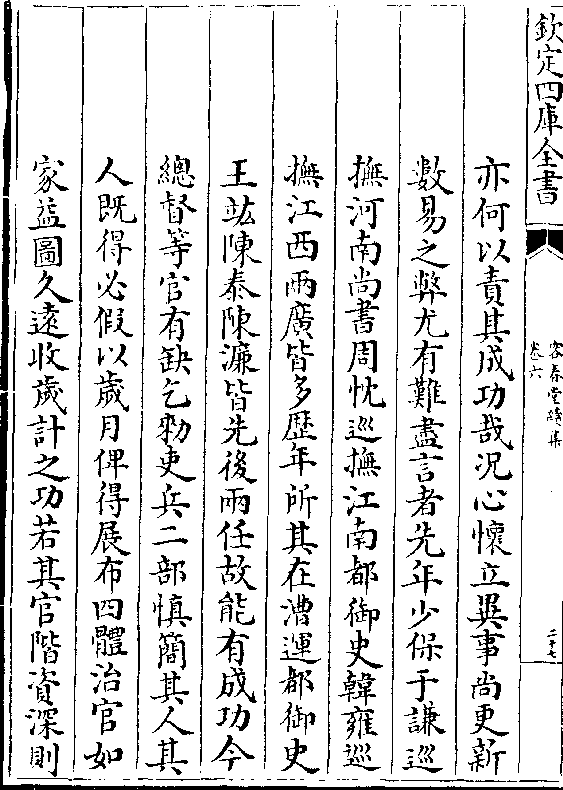 欽定四庫全書
容春堂續集
卷六
二十七
亦何以責其成功哉況心懷立異事尚更新
數易之弊尤有難盡言者先年少保于謙巡
撫河南尚書周忱巡撫江南都御史韓雍巡
撫江西兩廣皆多歴年所其在漕運都御史
王竑陳泰陳濂皆先後兩任故能有成功今
總督等官有缺乞勑吏兵二部慎簡其人其
人既得必假以歲月俾得展布四體治官如
家益圖久遠收歲計之功若其官階資深則